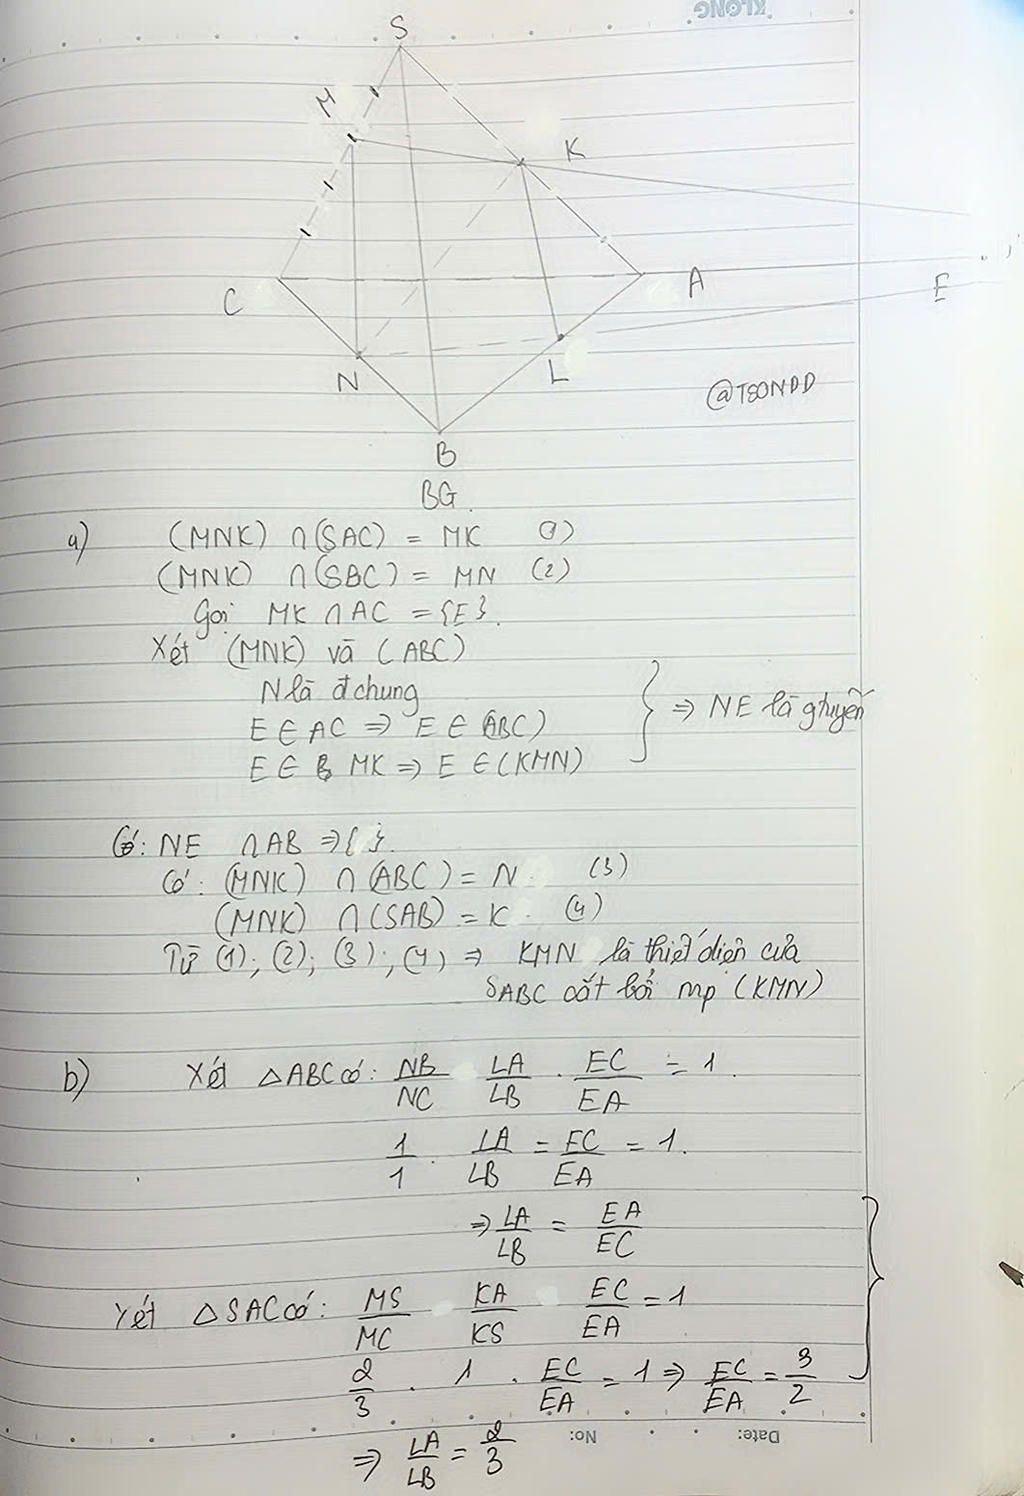 KLONG
S
M
K
C
A
E
N
L
@TSONDD
B
BG.
a) (MNK) ∩ (SAC) = MK (1)
(MNK) ∩ (SBC) = MN (2)
Gọi MK ∩ AC = {E}.
Xét (MNK) và (ABC)
N là đ chung
E ∈ AC ⇒ E ∈ (ABC)
E ∈ MK ⇒ E ∈ (KMN)
} ⇒ NE là gtuyến
Có: NE ∩ AB ⇒ { }.
Có: (MNK) ∩ (ABC) = N (3)
(MNK) ∩ (SAB) = K (4)
Từ (1); (2); (3); (4) ⇒ KMN là thiết diện của
SABC cắt bởi mp (KMN)
b) Xét △ABC có: NB/NC LA/LB . EC/EA = 1.
1/1 . LA/LB = EC/EA = 1.
⇒ LA/LB = EA/EC
Xét △SAC có: MS/MC KA/KS EC/EA = 1
2/3 . 1 . EC/EA = 1 ⇒ EC/EA = 3/2
⇒ LA/LB = 2/3
No:
Date: